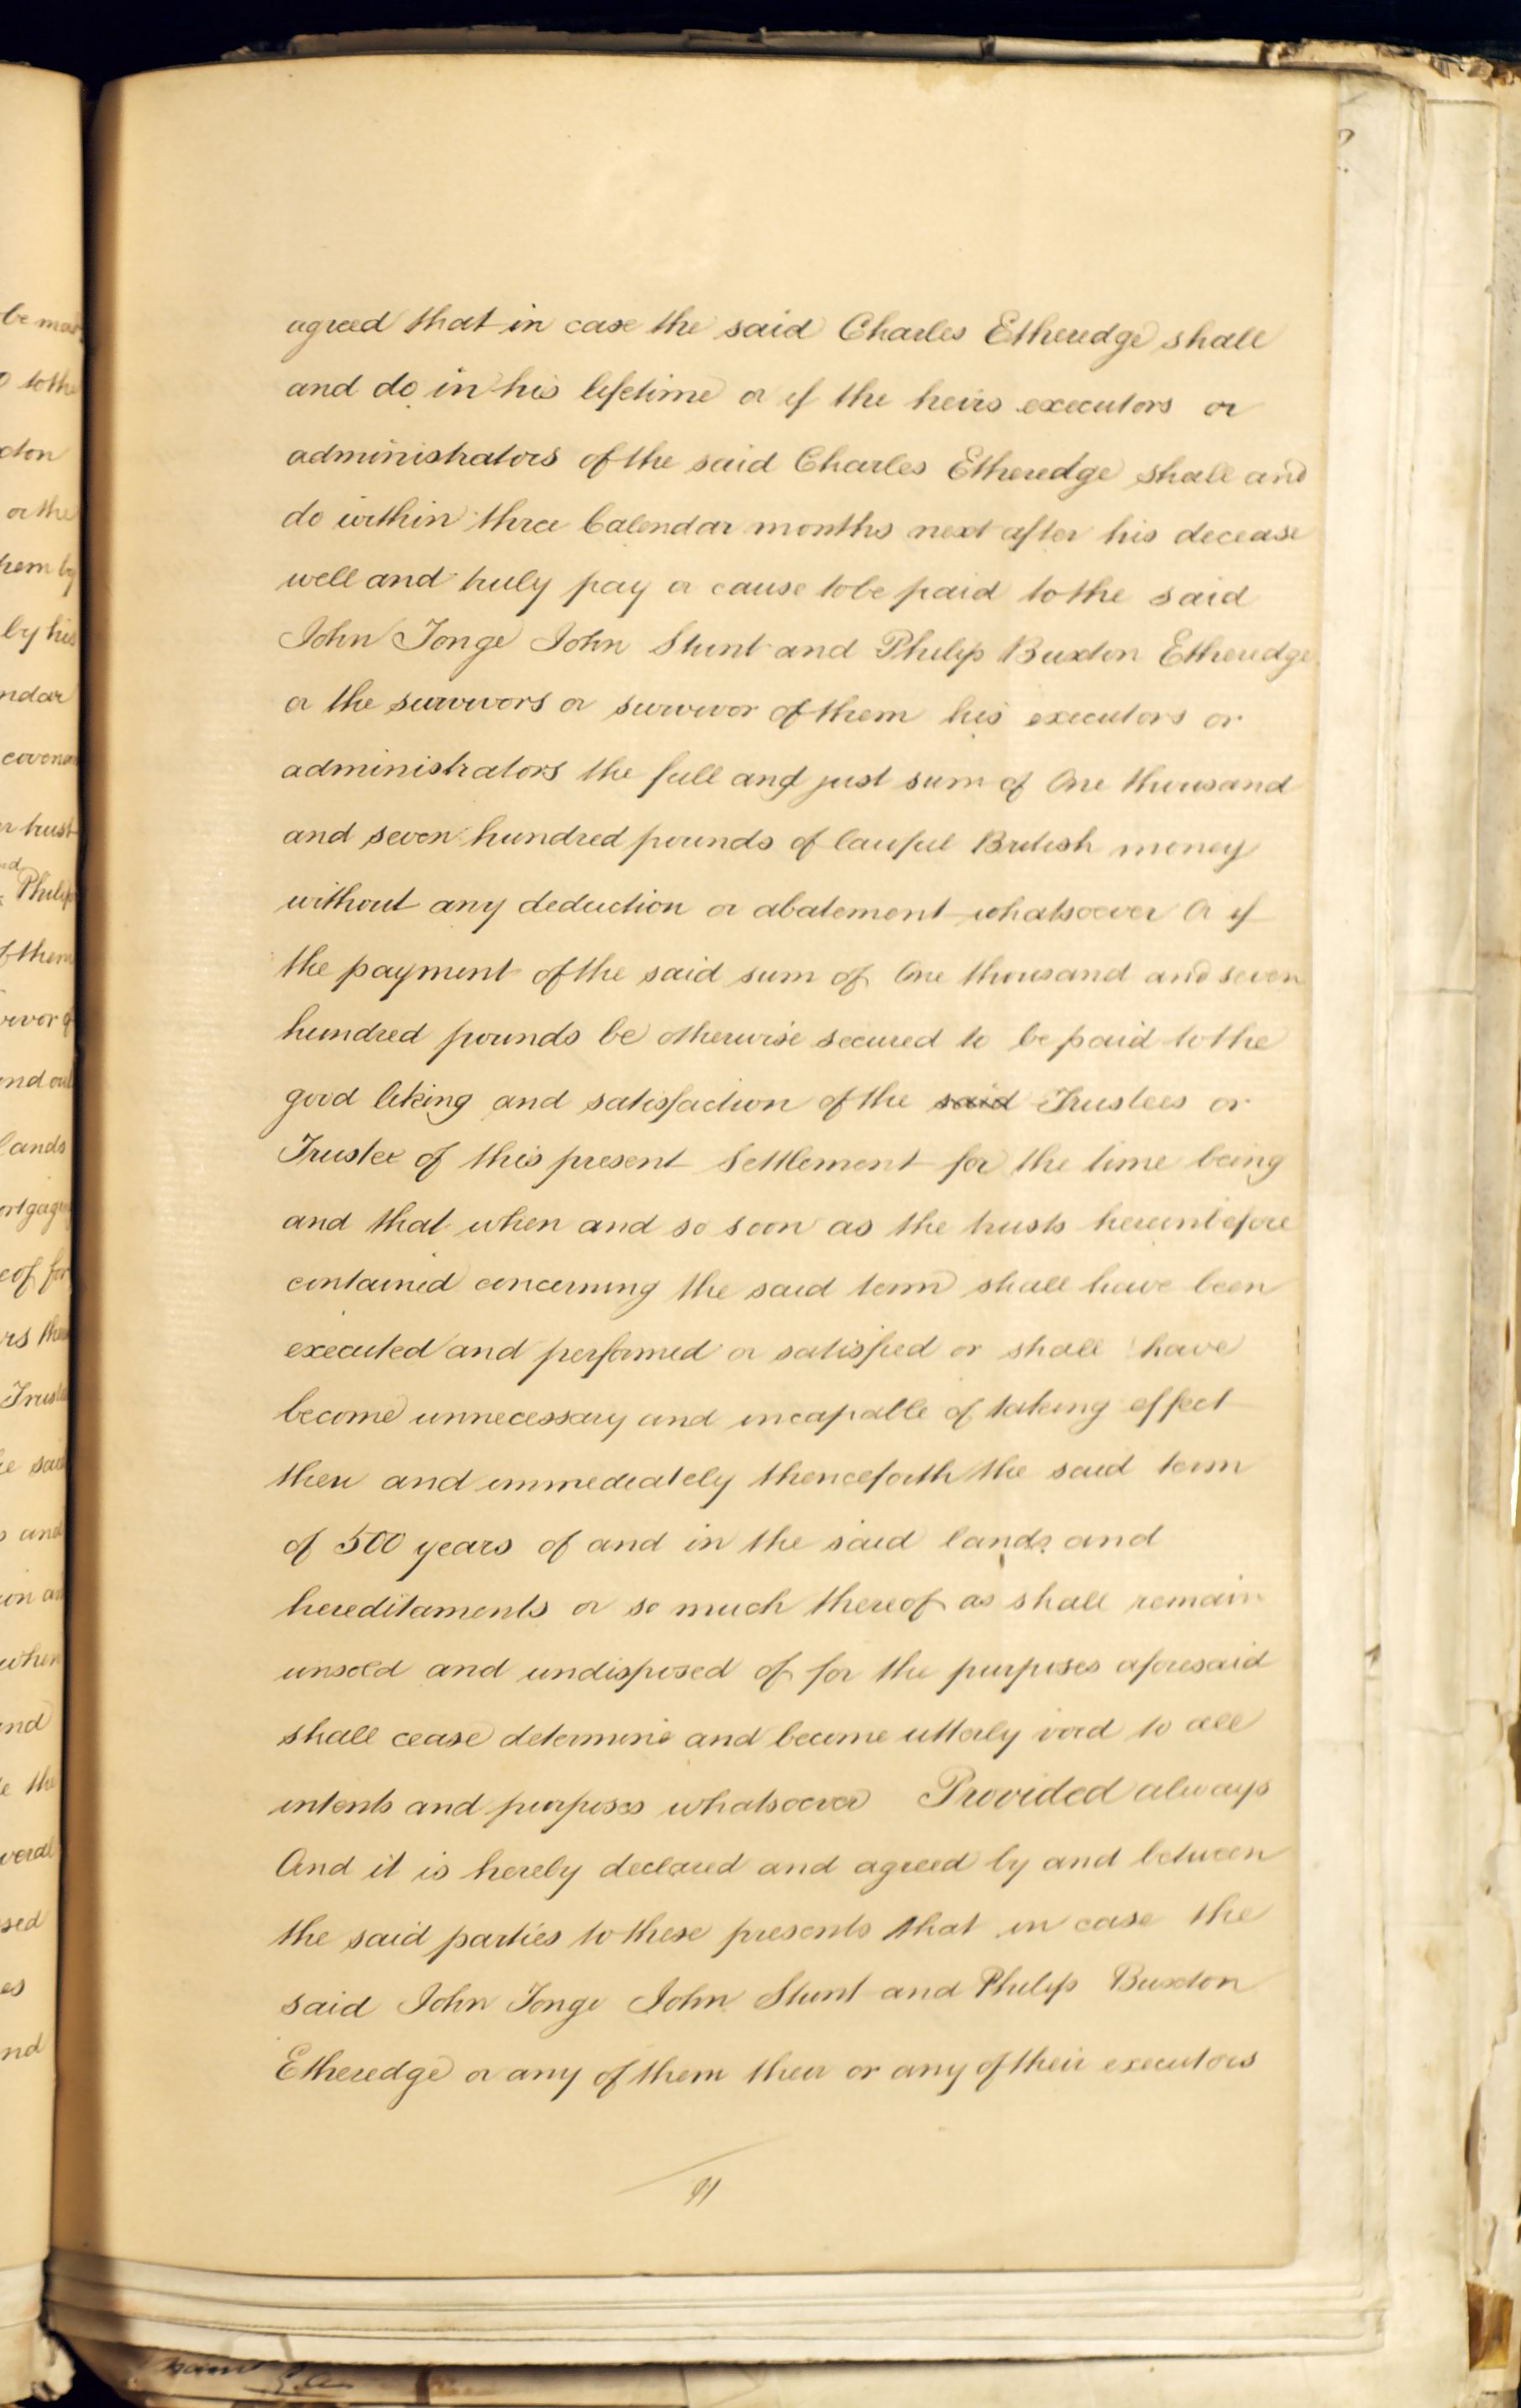 agreed that in case the said Charles Etheredge shall
and do in his lifetime or if the heirs executors or
administrators of the said Charles Etheredge shall and
do within three Calendar months next after his decease
well and truly pay or cause to be paid to the said
John Tonge John Stunt and Philip Buxton Etheredge
or the survivors or survivor of them his executors or
administrators the full and just sum of One thousand
and seven hundred pounds of lawful British money
without any deduction or abatement whatsoever Or if
the payment of the said sum of One thousand and seven
hundred pounds be otherwise secured to be paid to the
good liking and satisfaction of the said Trustees or
Trustee of this present Settlement for the time being
and that when and so soon as the trusts hereinbefore
contained concerning the said term shall have been
executed and performed or satisfied or shall have
become unnecessary and incapable of taking effect
then and immediately thenceforth the said term
of 500 years of and in the said lands and
hereditaments or so much thereof as shall remain
unsold and undisposed of for the purposes aforesaid
shall cease determine and become utterly void to all
intents and purposes whatsoever Provided always
And it is hereby declared and agreed by and between
the said parties to these presents that in case the
said John Tonge John Stunt and Philip Buxton
Etheredge or any of them their or any of their executors